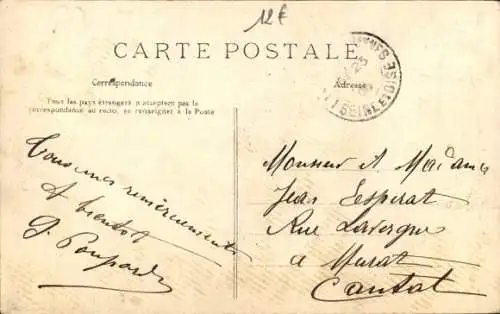 12 €
CARTE POSTALE
Correspondance
Tous les pays étrangers n'acceptent pas la
correspondance au recto, se renseigner à la Poste
Tous mes remerciements
A bientôt
Adresse
SEINE ET OISE
Monsieur & Madame
Jean Lesperat
Rue Lavergne
à Murat
Cantal